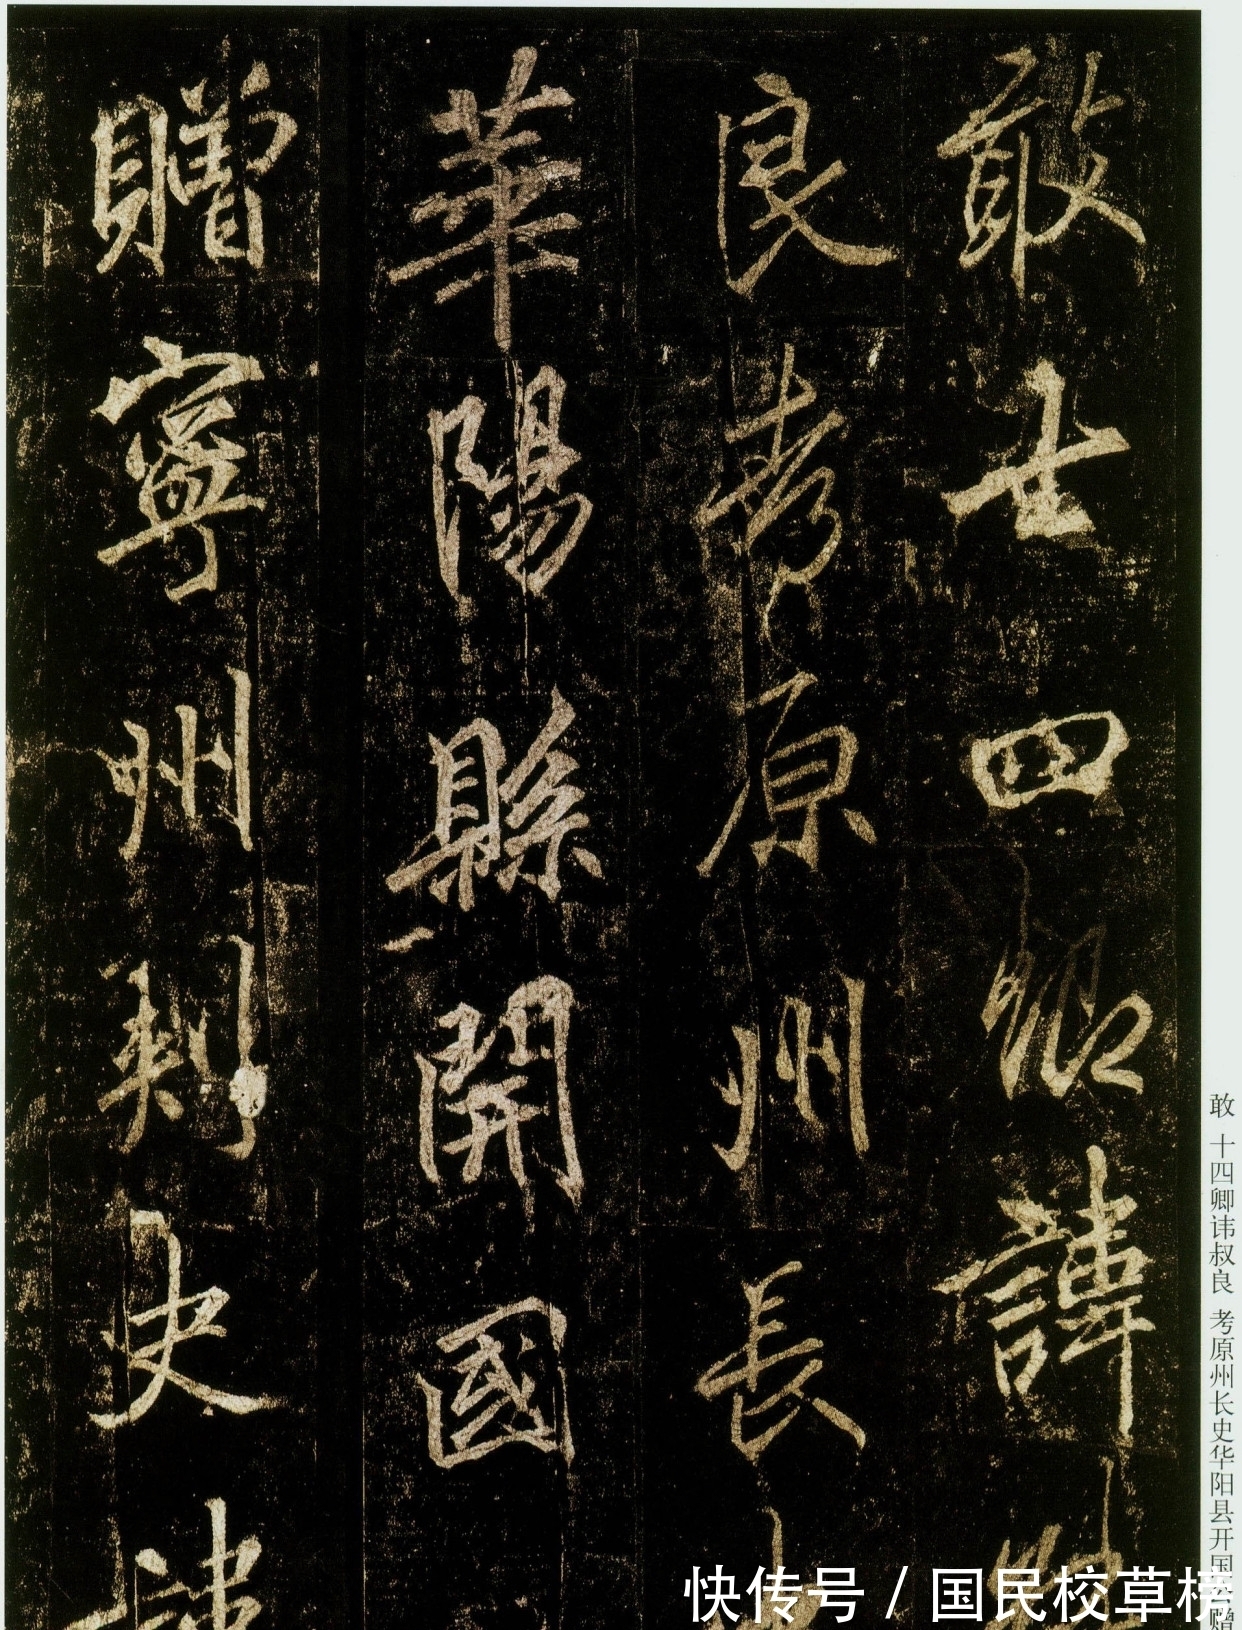 敢士四卿諱
良考原州長
華陽縣開國
贈寧州刾史
敢 十四卿讳叔良 考原州长史华阳县开国
快传号 / 国民校草榜